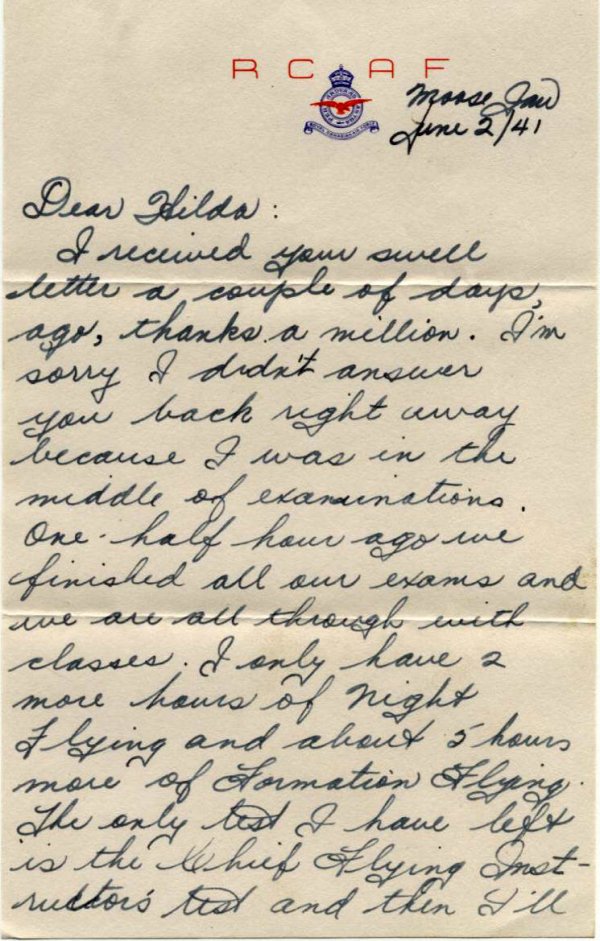 R C A F
ROYAL CANADIAN AIR FORCE
Moose Jaw
June 2/41
Dear Hilda:
I received your swell
letter a couple of days,
ago, thanks a million. I'm
sorry I didn't answer
you back right away
because I was in the
middle of examinations.
One-half hour ago we
finished all our exams and
we are all through with
classes. I only have 2
more hours of Night
Flying and about 5 hours
more of Formation Flying.
The only test I have left
is the Chief Flying Inst-
ructors test and then I'll